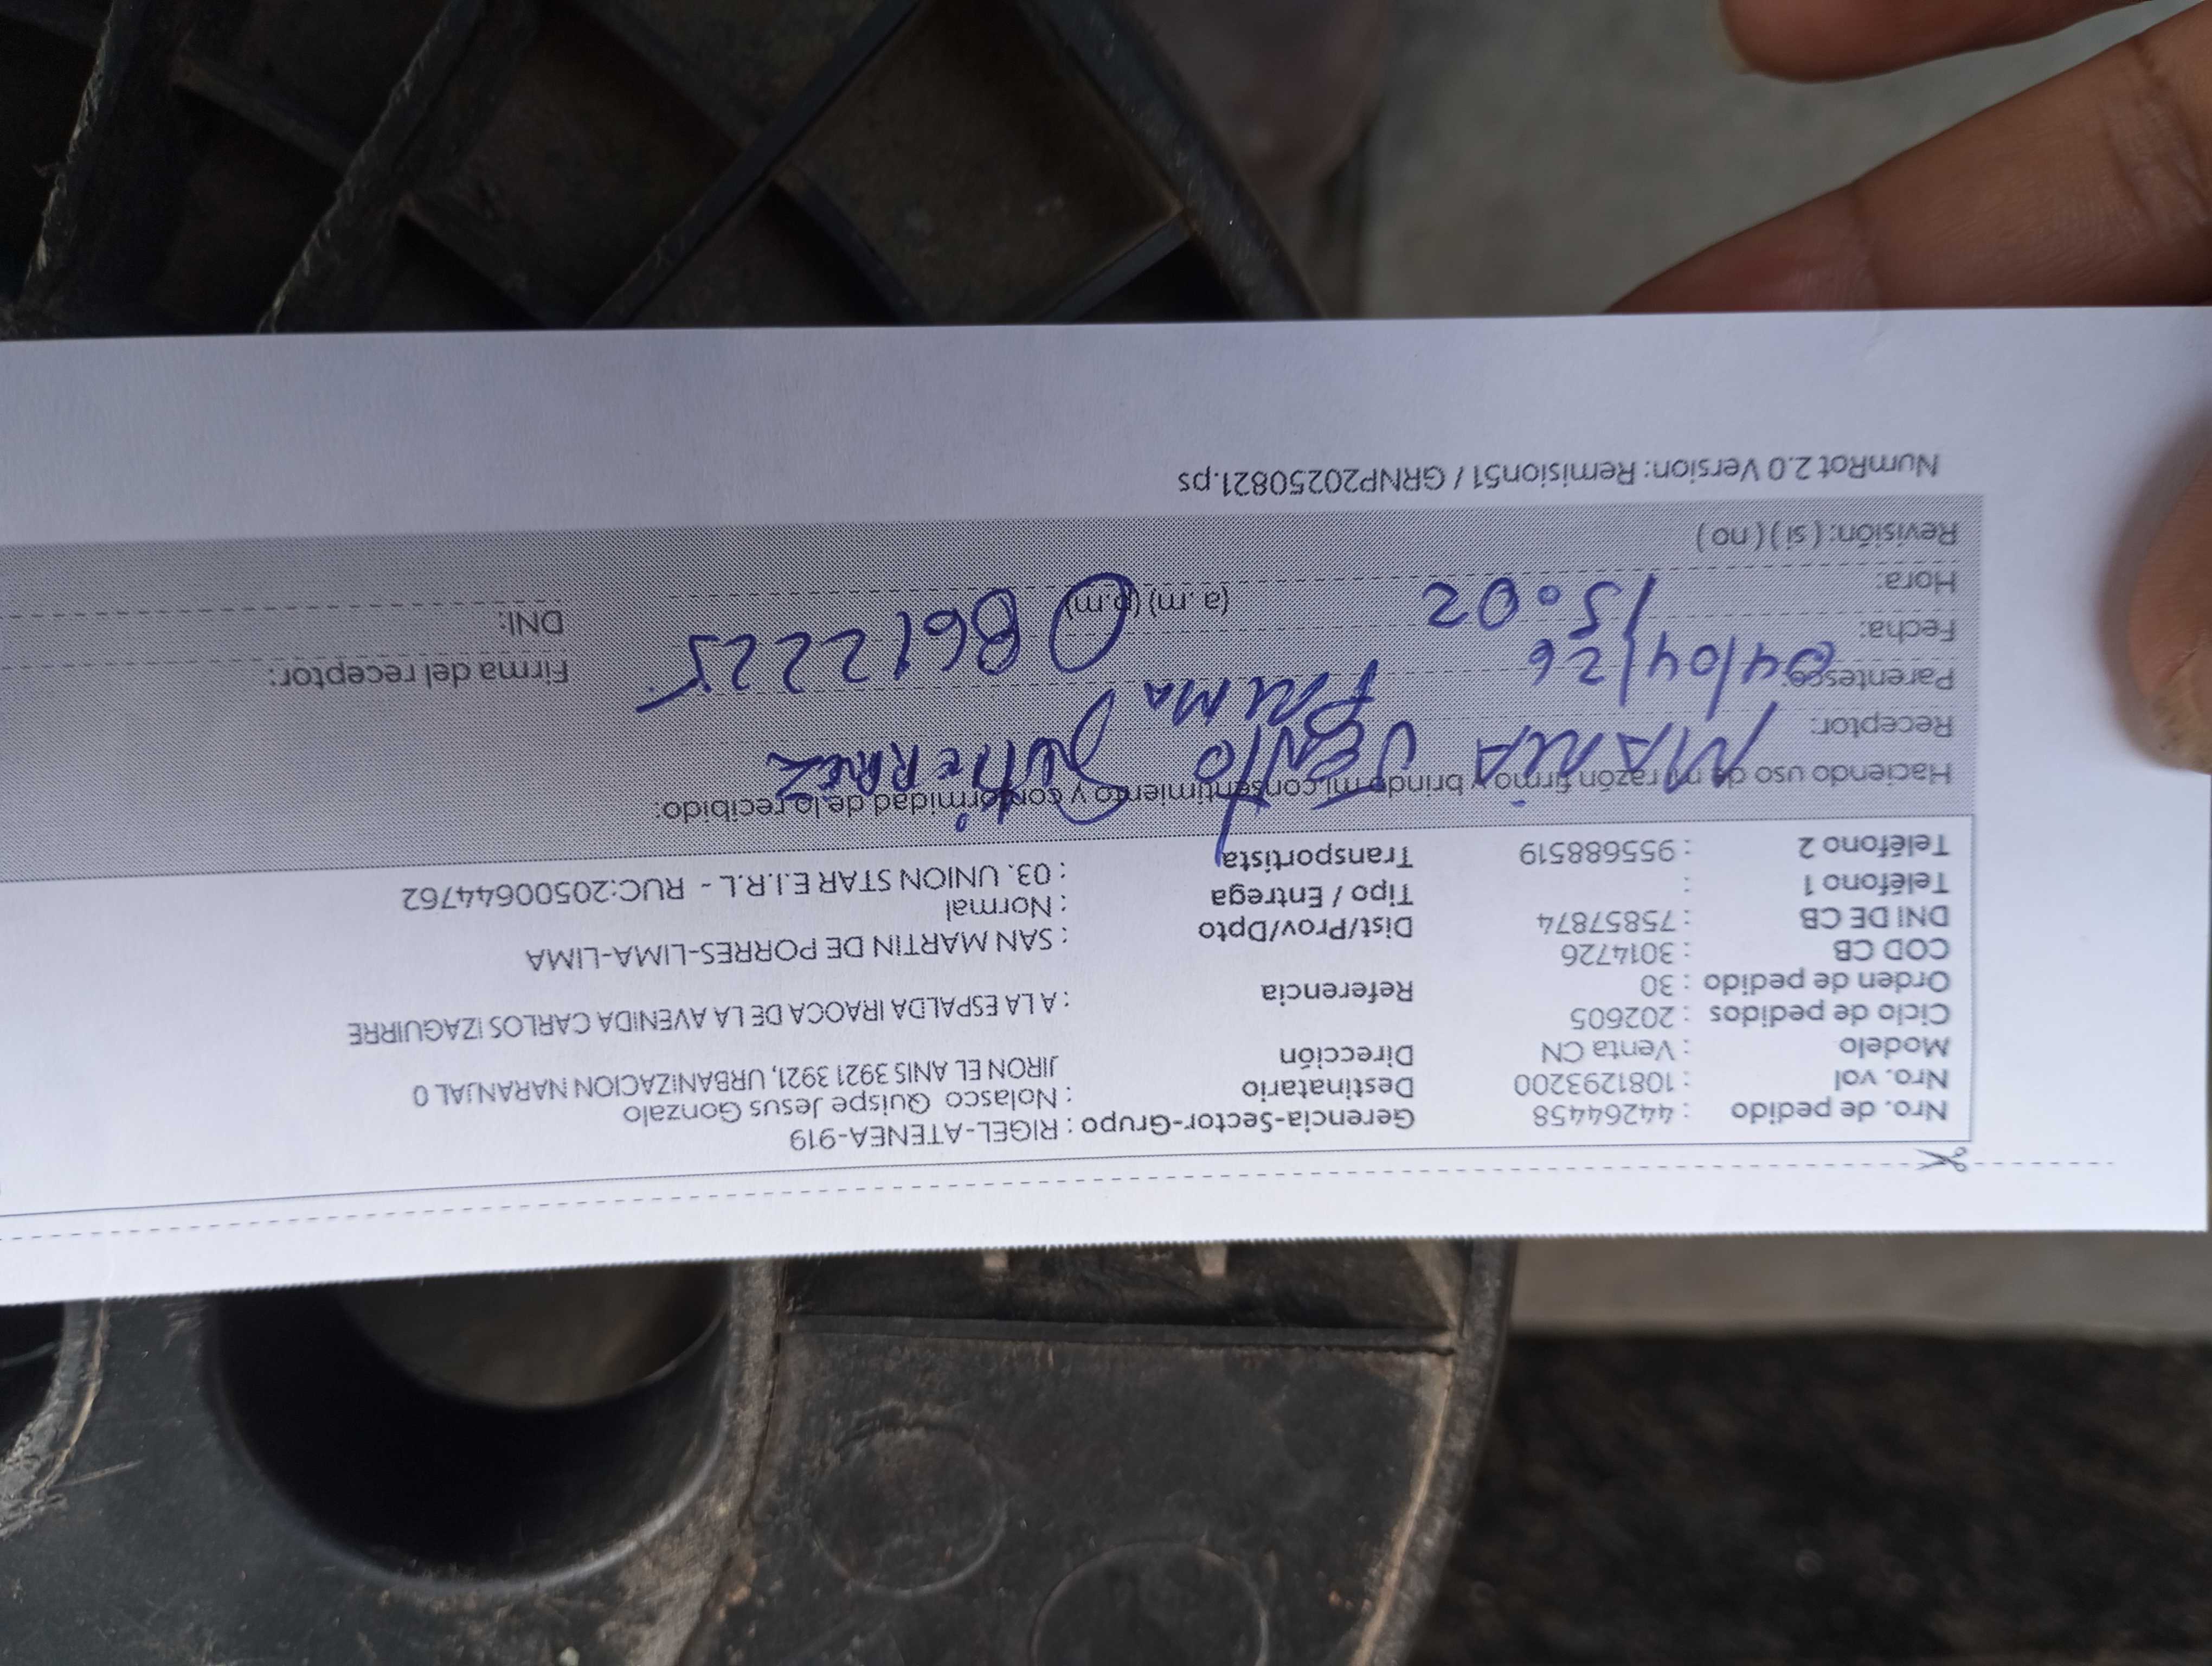 Nro. de pedido : 44264458 Gerencia-Sector-Grupo : RIGEL-ATENEA-919
Nro. vol : 1081293200 Destinatario : Nolasco Quispe Jesus Gonzalo
Modelo : Venta CN Dirección JIRON EL ANIS 3921 3921, URBANIZACION NARANJAL 0
Ciclo de pedidos : 202605
Orden de pedido : 30 Referencia : A LA ESPALDA IRAOCA DE LA AVENIDA CARLOS IZAGUIRRE
COD CB : 3014726
DNI DE CB : 75857874 Dist/Prov/Dpto : SAN MARTIN DE PORRES-LIMA-LIMA
Teléfono 1 : Tipo / Entrega : Normal
Teléfono 2 : 955688519 Transportista : 03. UNION STAR E.I.R.L - RUC:20500644762
Haciendo uso de mi razón firmo y brindo mi consentimiento y conformidad de lo recibido:
Receptor: MARIA
Parentesco:
Fecha: 04/04/26
Hora: 15:02 (a. m) (p.m)
08612225
Firma del receptor:
DNI:
Revisión: ( si ) ( no )
NumRot 2.0 Version: Remision51 / GRNP20250821.ps